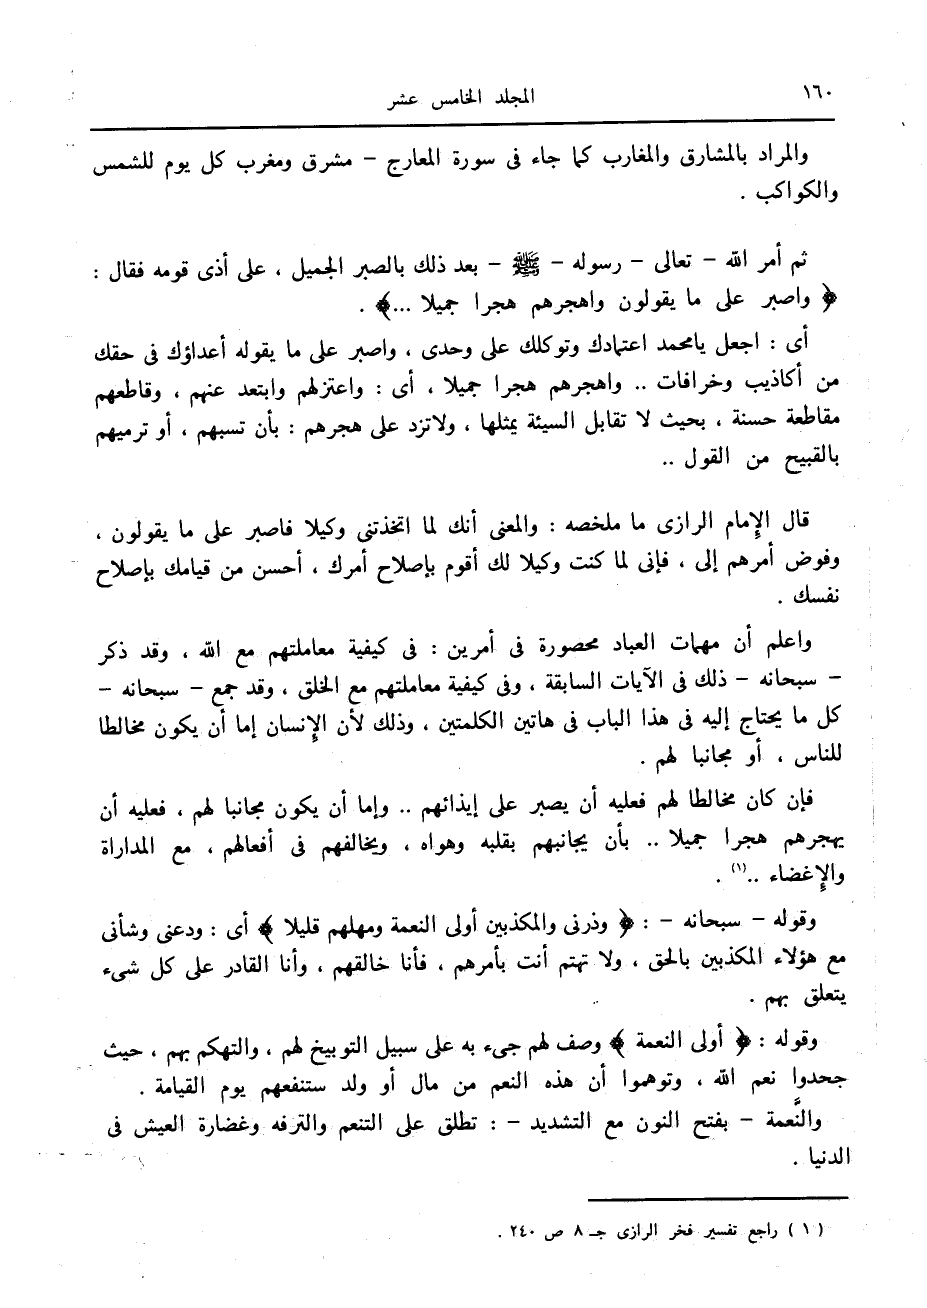 ١٦٠
المجلد الخامس عشر
والمراد بالمشارق والمغارب كما جاء فى سورة المعارج – مشرق ومغرب كل يوم للشمس
والكواكب .
ثم أمر الله – تعالى – رسوله – ﷺ – بعد ذلك بالصبر الجميل ، على أذى قومه فقال :
﴿ واصبر على ما يقولون واهجرهم هجرا جميلا ...﴾ .
أى : اجعل يامحمد اعتمادك وتوكلك على وحدى ، واصبر على ما يقوله أعداؤك فى حقك
من أكاذيب وخرافات .. واهجرهم هجرا جميلا ، أى : واعتزلهم وابتعد عنهم ، وقاطعهم
مقاطعة حسنة ، بحيث لا تقابل السيئة بمثلها ، ولاتزد على هجرهم : بأن تسبهم ، أو ترميهم
بالقبيح من القول ..
قال الإمام الرازى ما ملخصه : والمعنى أنك لما اتخذتنى وكيلا فاصبر على ما يقولون ،
وفوض أمرهم إلى ، فإنى لما كنت وكيلا لك أقوم بإصلاح أمرك ، أحسن من قيامك بإصلاح
نفسك .
واعلم أن مهمات العباد محصورة فى أمرين : فى كيفية معاملتهم مع الله ، وقد ذكر
– سبحانه – ذلك فى الآيات السابقة ، وفى كيفية معاملتهم مع الخلق ، وقد جمع – سبحانه –
كل ما يحتاج إليه فى هذا الباب فى هاتين الكلمتين ، وذلك لأن الإنسان إما أن يكون مخالطا
للناس ، أو مجانبا لهم .
فإن كان مخالطا لهم فعليه أن يصبر على إيذائهم .. وإما أن يكون مجانبا لهم ، فعليه أن
يهجرهم هجرا جميلا .. بأن يجانبهم بقلبه وهواه ، ويخالفهم فى أفعالهم ، مع المداراة
والإغضاء ..(١) .
وقوله – سبحانه – : ﴿ وذرنى والمكذبين أولى النعمة ومهلهم قليلا ﴾ أى : ودعنى وشأنى
مع هؤلاء المكذبين بالحق ، ولا تهتم أنت بأمرهم ، فأنا خالقهم ، وأنا القادر على كل شىء
يتعلق بهم .
وقوله : ﴿ أولى النعمة ﴾ وصف لهم جىء به على سبيل التوبيخ لهم ، والتهكم بهم ، حيث
جحدوا نعم الله ، وتوهموا أن هذه النعم من مال أو ولد ستنفعهم يوم القيامة .
والنَّعمة – بفتح النون مع التشديد – : تطلق على التنعم والترفه وغضارة العيش فى
الدنيا .
( ١ ) راجع تفسير فخر الرازى جـ ٨ ص ٢٤٠ .